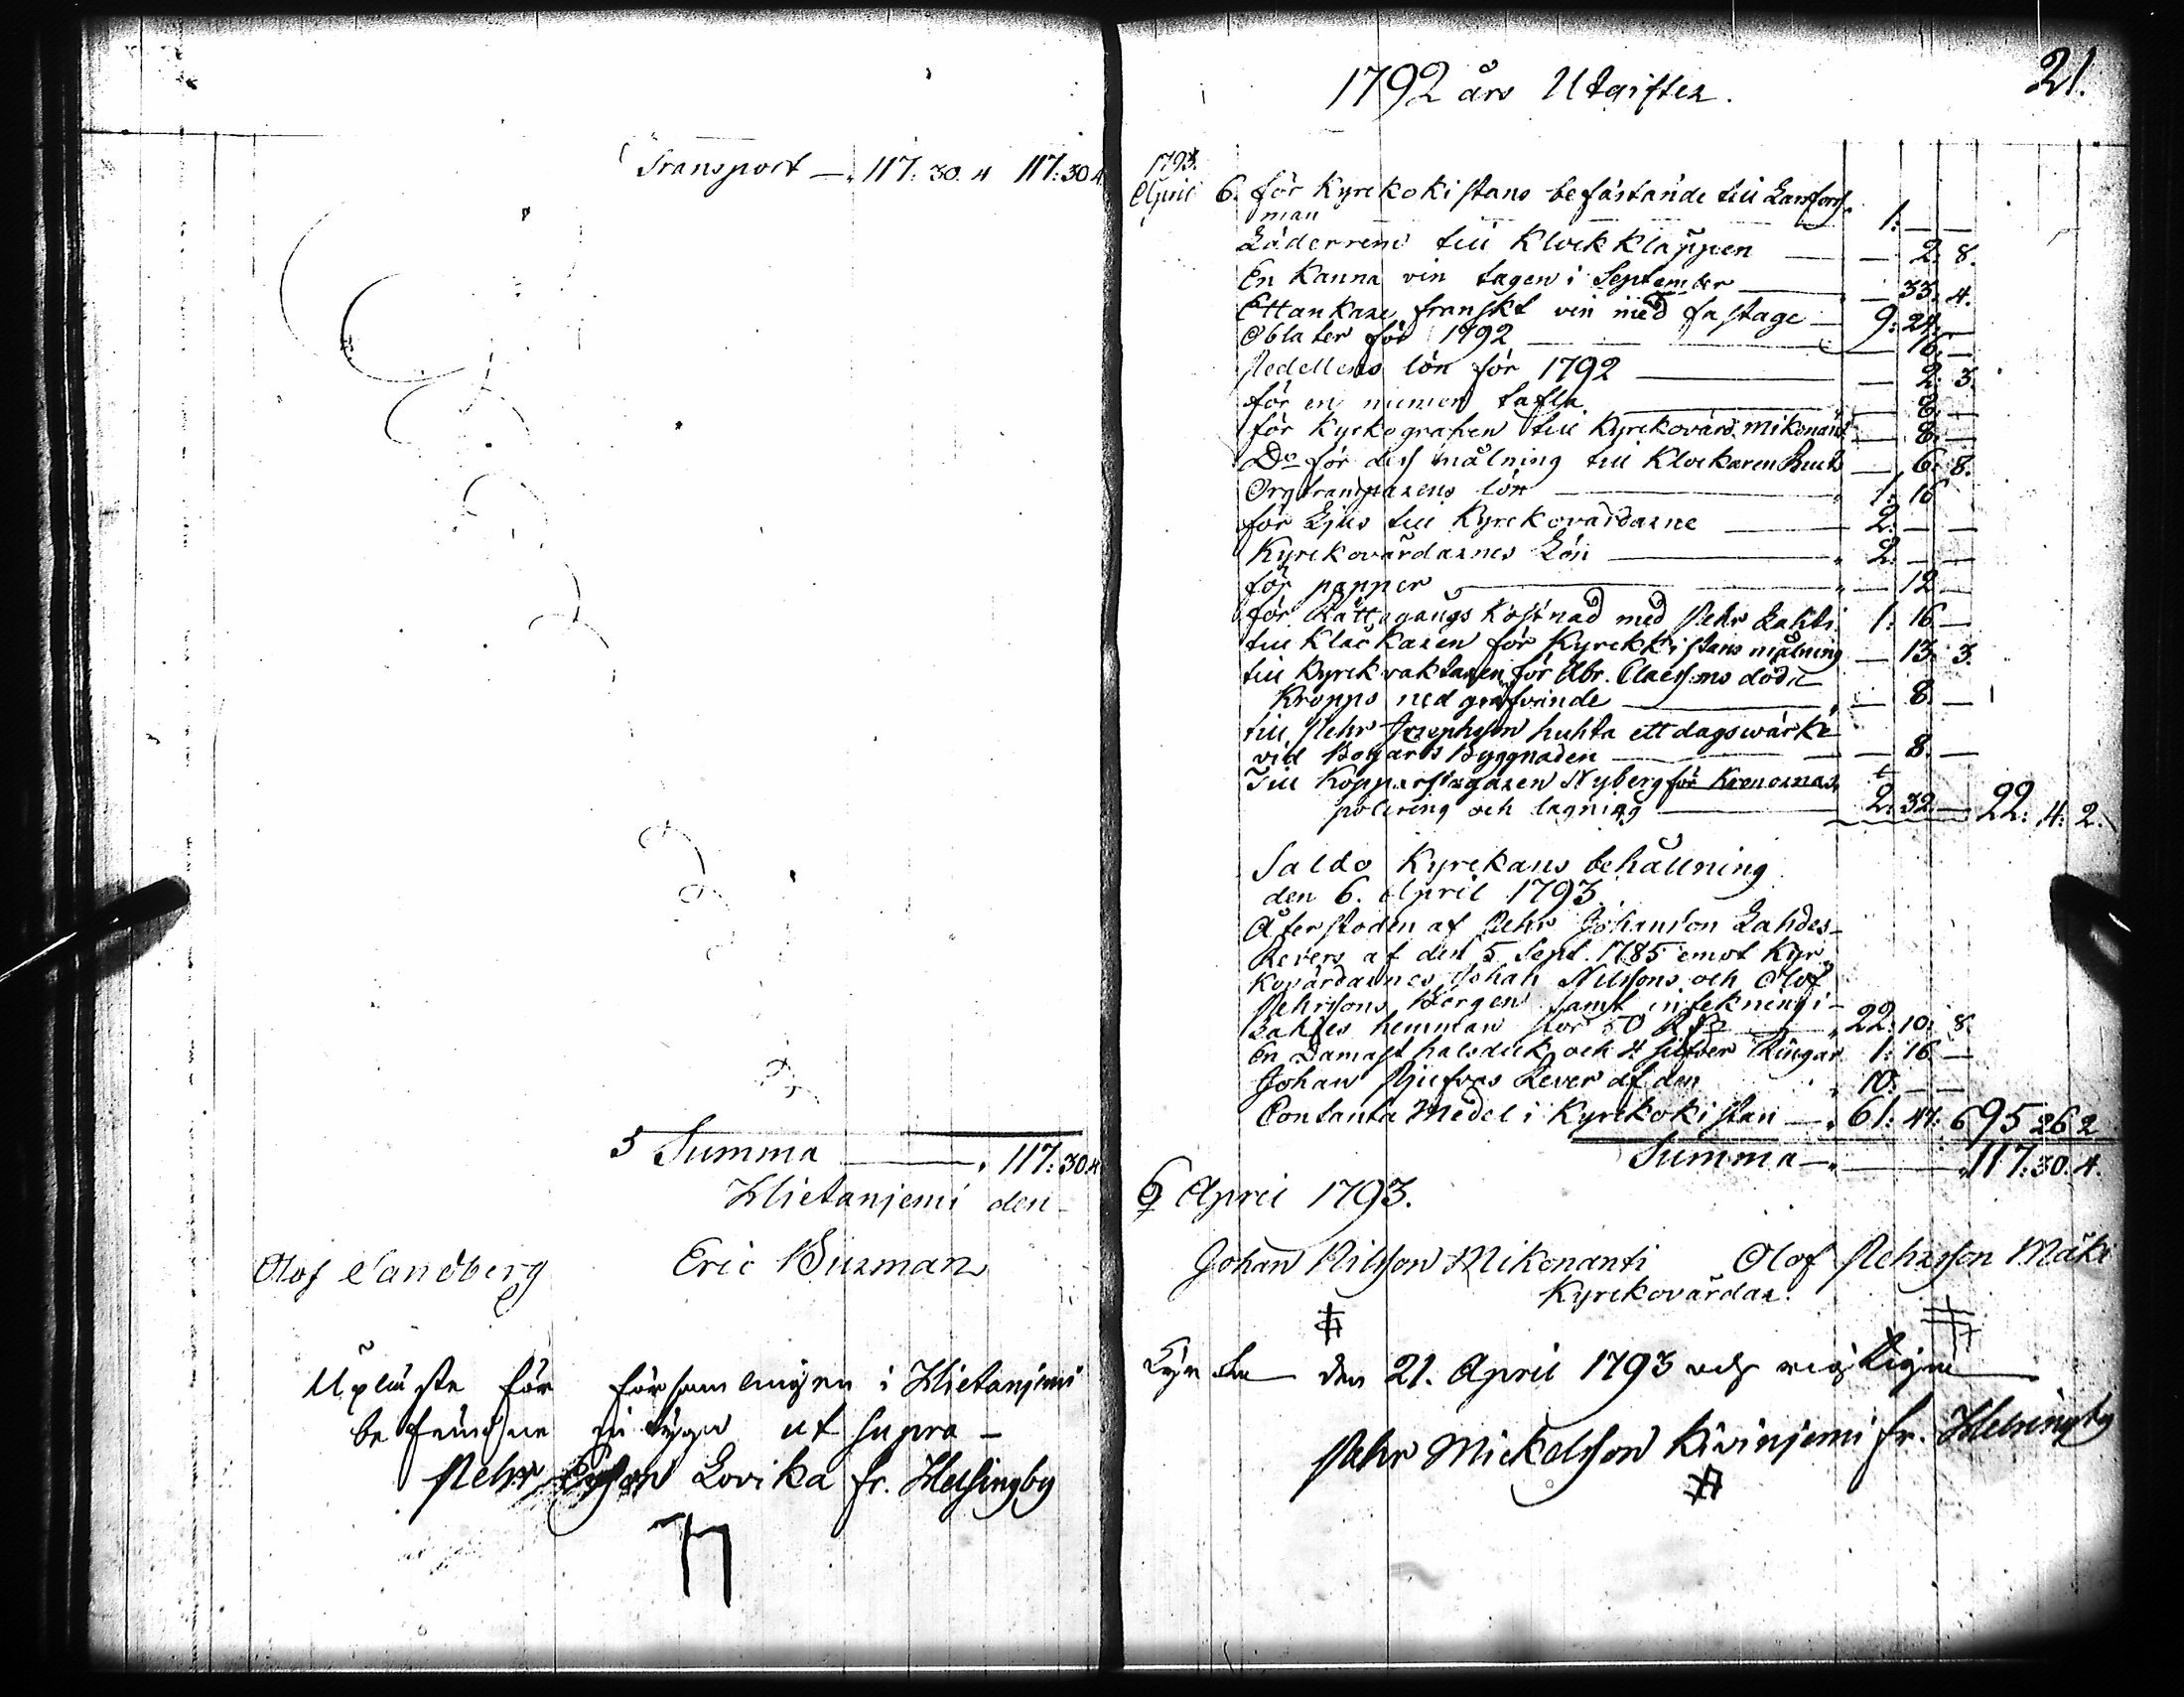 Transport — 117. 30. 4 117: 30 4.
Summa — 117: 30. 4
Hietaniemi den
Olof Sandberg Eric Burman
Upläste för församlingen i Hietaniemi
befunne ut supra —
Pehr Lovika fr. Helsingby
21.
1792 års Utgifter.
1793.
April 6. för Kyrkokistans befästande till
man 1: — —
Läderrem till Klockkläppen — 2: 8.
En Kanna vin tagen i September — 33. 4.
Ett ankare franskt vin med fastage — 9: 24. —
Oblater för 1792 — 16. —
Pedellens lön för 1792 — 2: 3.
för en numer tafla — 8. —
för Kyrkografven till Kyrckovärd. Mikonanti — 8. —
Do för dess målning till Klockaren — 6. 8.
Orgtramparens lön — 1: 16
för Ljus till Kyrckovärdarne — 2. — —
Kyrckovärdarnes Lön — 2. — —
för papper — 12 —
för Rättegångs kostnad med Pehr Lahti 1: 16 —
till Klåckaren för Kyrckkistans målning — 13. 3.
till Kyrckvaktaren för Abr. Claessons döda
Kropps nedgrafvande — 8. —
till Pehr Josephsson huhta ett dagswärke
vid Bogårds Byggnaden — 8. —
Till Kopparslagaren Nyberg för Kronornas
polering och lagning — 2. 32. — 22: 4: 2.
Saldo Kyrckans behållning
den 6. April 1793.
Återstoden af Pehr Johansson Lahdes
Revers af den 5 Sept. 1785 emot Kyr-
kovärdarnes Johan Nilssons och Olof
Pehrssons Borgen samt inteckning i
Lahdes hemman stor 50 — 22: 10: 8.
En Damast halsduk och 4 silfver Ringar 1: 16 —
Johan Revers af den 10. — —
Contanta Medel i Kyrckokistan — 61: 47: 6 95 26 2
Summa — 117. 30. 4.
6 April 1793.
Johan Nilsson Mikonanti Olof Pehrsson Mäki
Kyrckovärdar.
den 21. April 1793 och
Pehr Mickelsson Kivinjemi fr. Helsingby